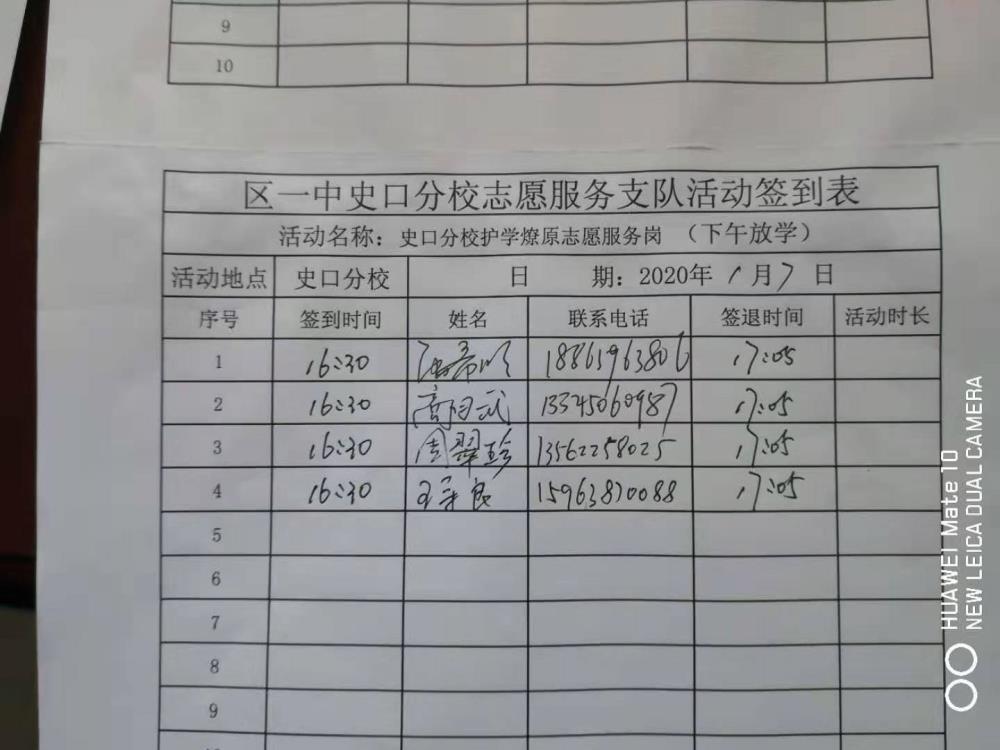 9
10
区一中史口分校志愿服务支队活动签到表
活动名称：史口分校护学燎原志愿服务岗 （下午放学）
活动地点 史口分校 日 期：2020年 1 月 7 日
序号 签到时间 姓名 联系电话 签退时间 活动时长
1 16:30 18865963806 17:05
2 16:30 13345060987 17:05
3 16:30 周翠珍 13562258025 17:05
4 16:30 15963870088 17:05
5
6
7
8
9
HUAWEI Mate 10
NEW LEICA DUAL CAMERA